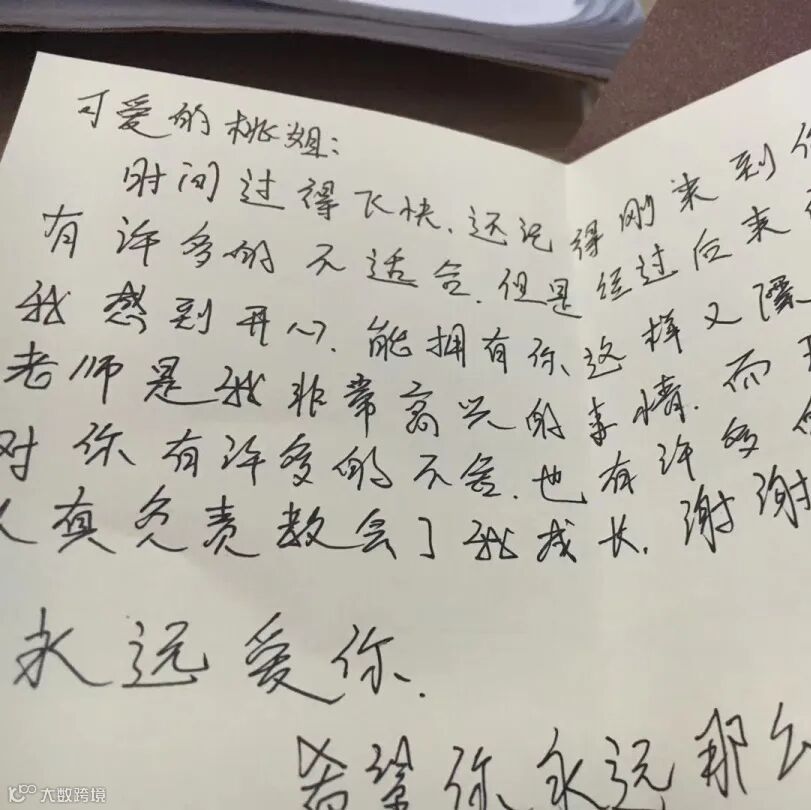 可爱的桃姐：
时间过得飞快、还记得刚来到
有许多的不适合．但是经过后来
我感到开心．能拥有你这样又
老师是我非常高兴的事情．而
对你有许多的不舍．也有许多
真负责教会了我成长．谢谢
永远爱你．
希望你永远那么
大数跨境